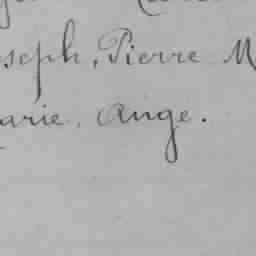 seph, Pierre M
arie, Ange.